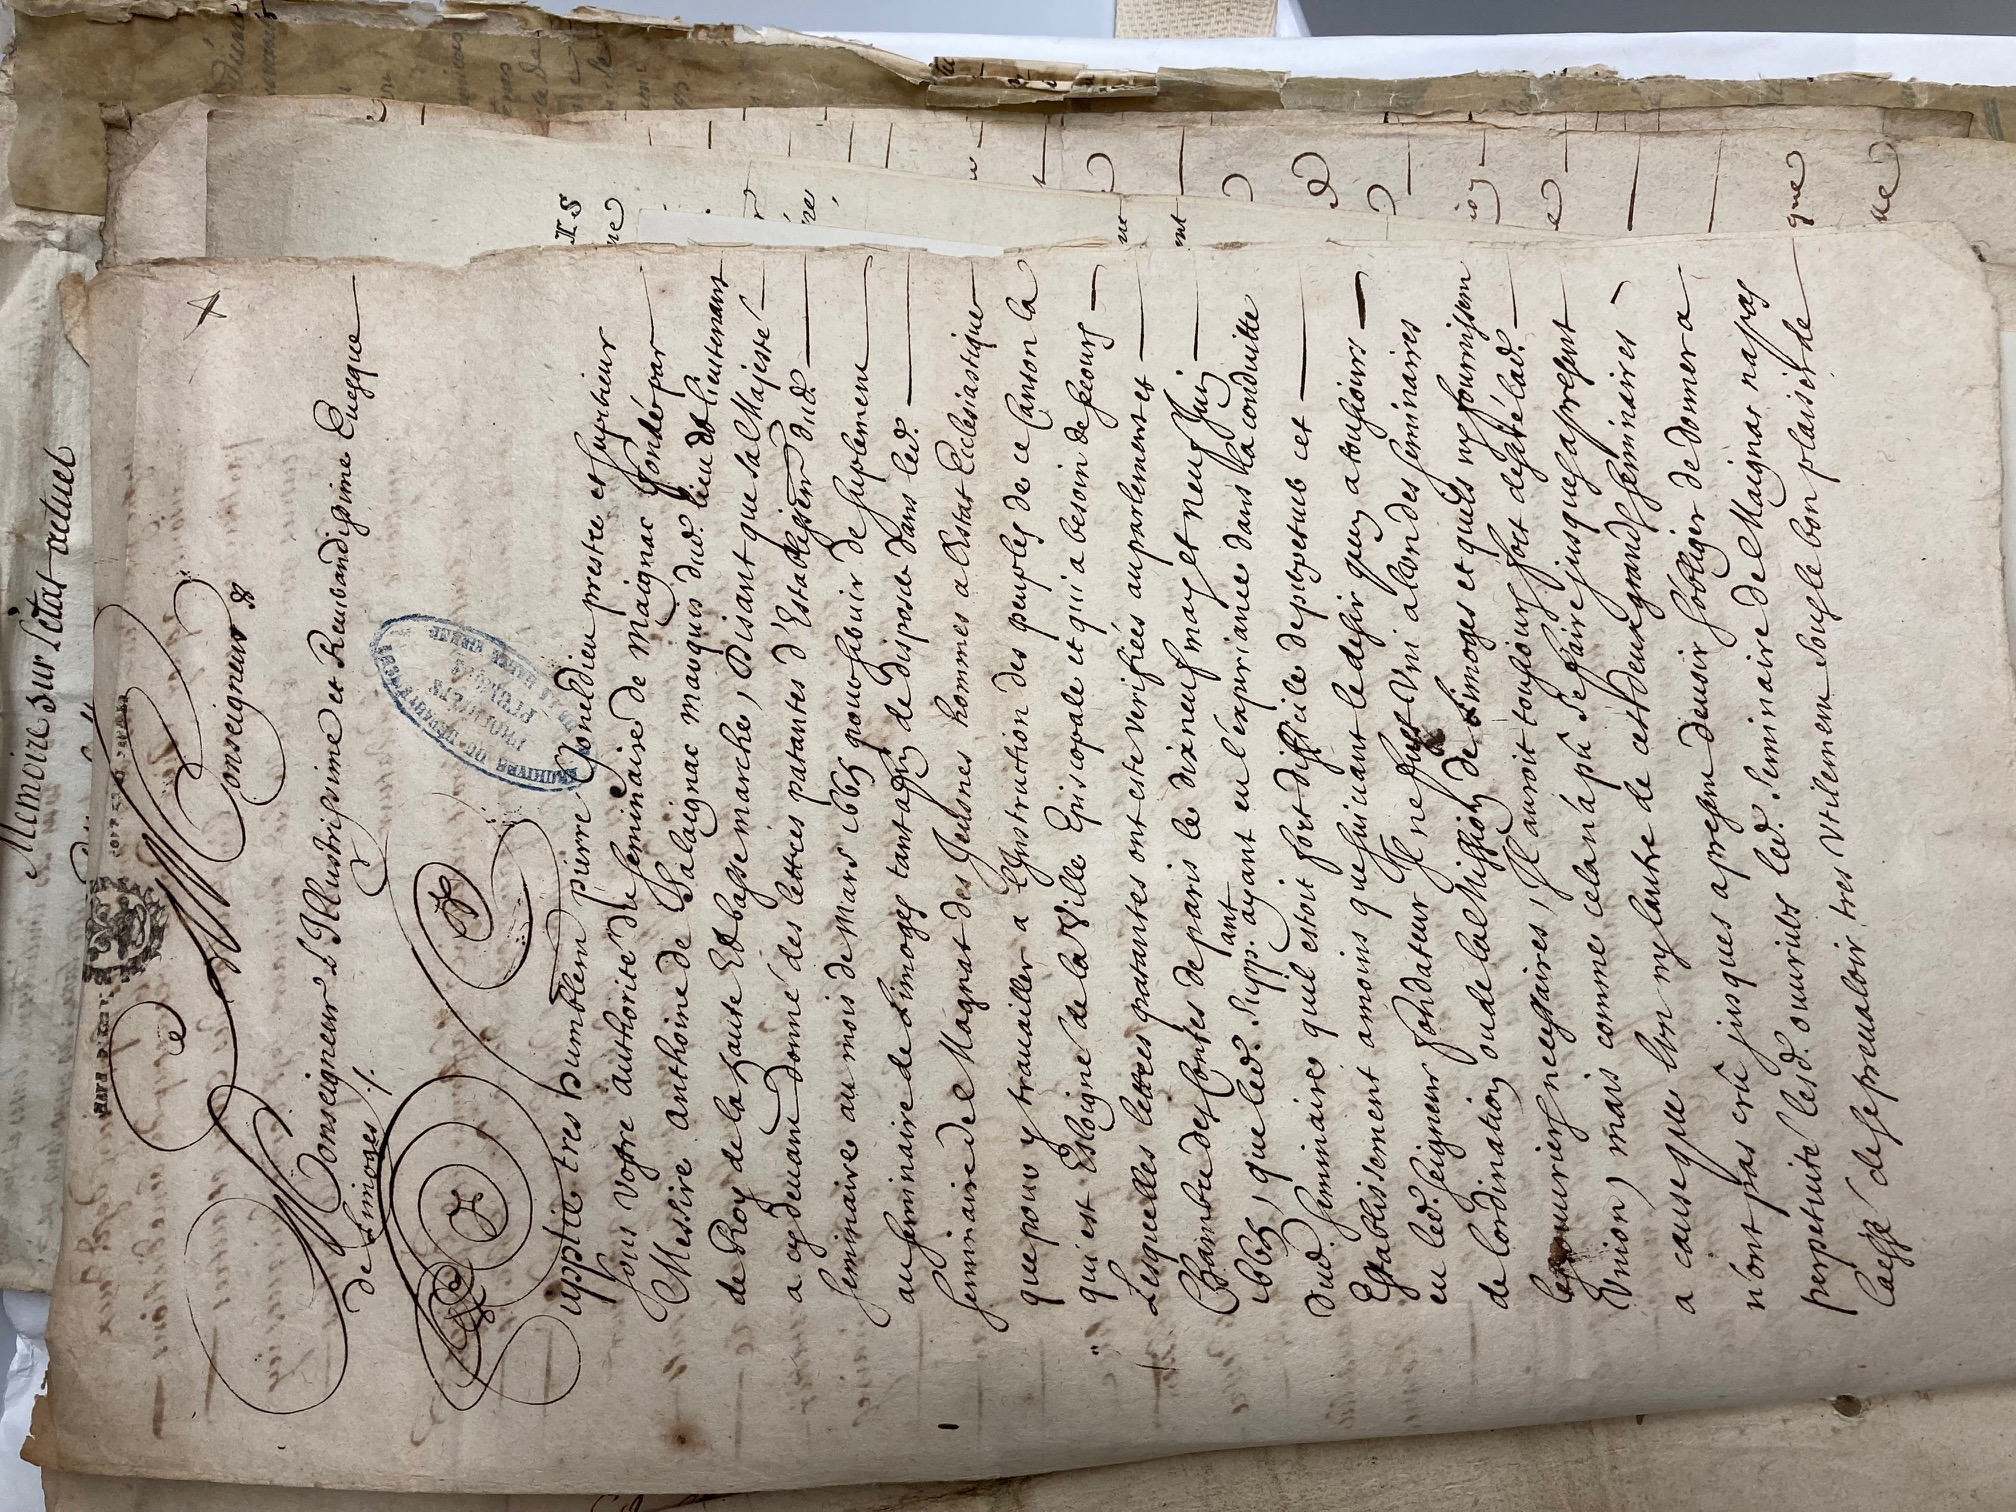 Memoire sur l'état actuel
Monseigneur &
Monseigneur L'Illustrissime et Reverandissime Euesque
de Limoges /.
Supplie tres humblem pierre Goneldieu prestre et superieur
sous votre authorité du seminaire de Maignac fondé par
Messire Anthoine de Salaignac marquis dud. lieu et lieutenant
de Roy de la haute Et basse marche, Disant que sa Majesté
a cy deuant donné des lettres patantes d'Establissem dud.
seminaire au mois de Mars 1665 pour seruir de suplement
au seminaire de Limoges tant affin de disposer dans led.
seminaire de Magnat des Jeusnes hommes a l'Estat Ecclesiastique
que pour y trauailler a l'Instruction des peuples de ce Canton la
qui est Esloigné de la Ville Episcopale et qui a besoin de secours
Lesquelles lettres patantes ont esté Verifiées au parlement et
Chambre des Contes de paris le dix neuf may et neuf Juin
1665, que led. Supp.ant ayant eu l'experiance dans la conduitte
dud. seminaire quil estoit fort difficile de perpetuer cet
Establissement amoins que suiuant le desir quen a tousiours
eu led. seigneur fondateur Il ne fust Vni a lun des seminaires
de lordination ou de la Mission de Limoges et quils ny fournissem
les ouuriers necessaires, Il auroit tousiours fort desiré lad.
Vnion, mais comme cela n'a pû se faire jusques a present
a cause que lon ny lautre de ces deux grands seminaires
n'ont pas crû jusques a presen deuoir s'obliger de donner a
perpetuité lesd. ouuriers led. seminaire de Maignac na pas
laissé de se preualoir tres Vtilement sous le bon plaisir de